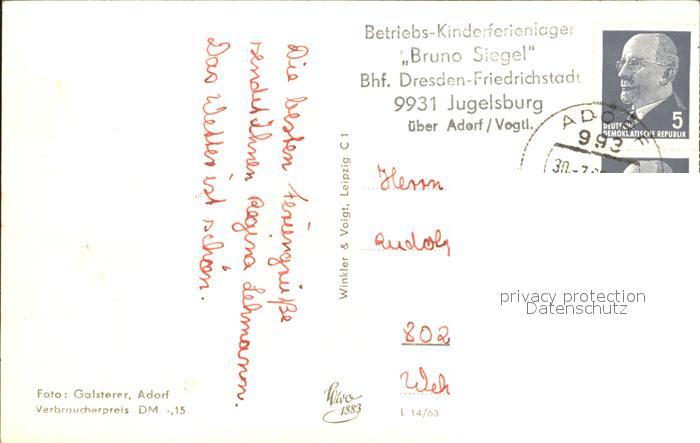 Betriebs-Kinderferienlager
"Bruno Siegel"
Bhf. Dresden-Friedrichstadt
9931 Jugelsburg
über Adorf/Vogtl.
5
DEUTSCHE
DEMOKRATISCHE REPUBLIK
ADORF
993
30.-7.
Die besten Feriengrüße
sendet Ihnen Regina Lehmann.
Das Wetter ist schön.
Winkler & Voigt, Leipzig C 1
Herrn
Rudolf
802
privacy protection
Datenschutz
Foto: Galsterer, Adorf
Verbraucherpreis DM -,15
1883
L 14/63